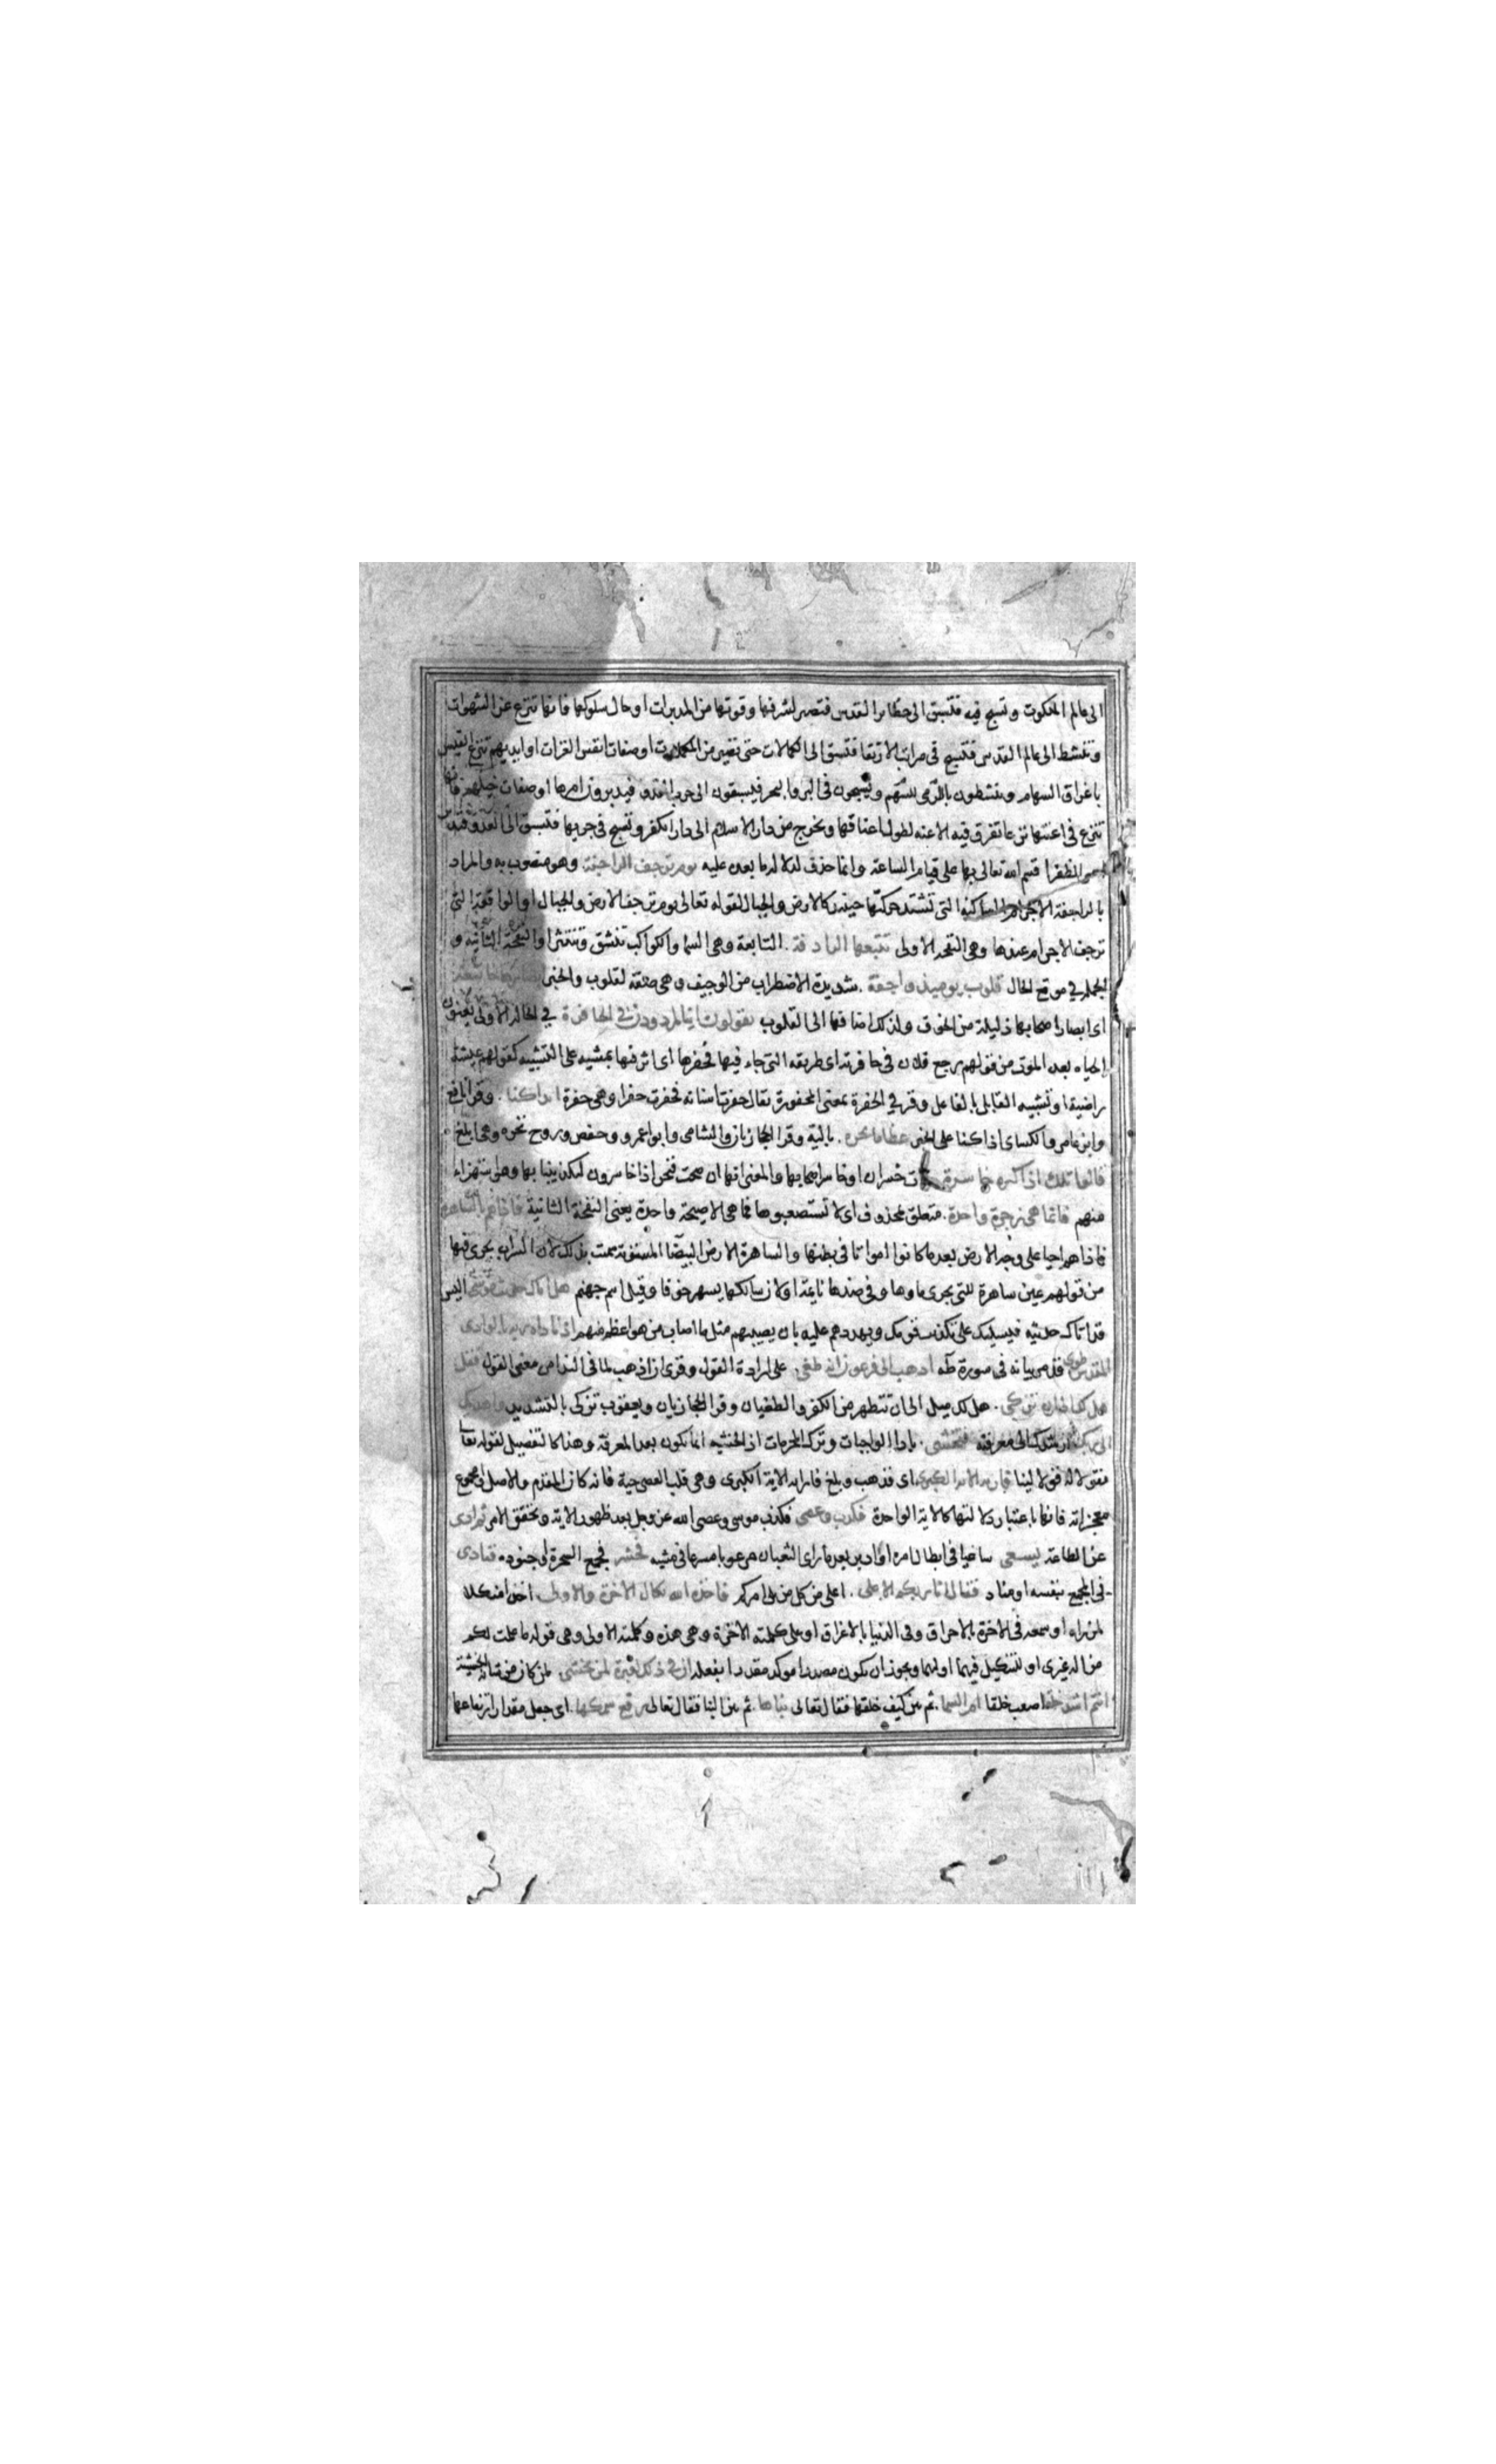 الى عالم الملكوت وتسبح فيه فتسبق الى حظاير القدس فتصير لشرفها وقوتها من المدبرات او حال سلوكها فانها تنزع عن الشهوات
وتنشط الى عالم القدس فتسبح فى مراتب الارتقا فتسبق الى الكمالات حتى تصير من المكملات او صفات انفس الغزات او ايديهم تنزع القسى
باغراق السهام وينشطون بالسهم للرمى ويسبحون فى البر والبحر فيسبقون الى حرب العدو فيدبرون امرها او صفات خيلهم فانها
تنزع فى اعنتها نزعا تغرق فيه الاعنه لطول اعناقها وتخرج من دار الاسلام الى دار الكفر وتسبح فى جريها فتسبق الى العدو فتدبر
امر الظفر اقسم الله تعالى بها على قيام الساعة وانما حذف لدلالة ما بعده عليه يوم ترجف الراجفة وهو منصوب به والمراد
بالراجفة الاجرام الساكنة التى تشتد حركتها حينئذ كالارض والجبال لقوله تعالى يوم ترجف الارض والجبال او الواقعة التى
ترجف الاجرام عندها وهى النفخة الاولى تتبعها الرادفة . التابعة وهى السما والكواكب تنشق وتنتثر او النفخة الثانية و
الجملة فى موقع الحال قلوب يومئذ واجفة . شديدة الاضطراب من الوجيف وهى صفة لقلوب والخبر ابصارها خاشعة
اى ابصار اصحابها ذليلة من الخوف ولذلك اضافها الى القلوب يقولون اينا لمردودون فى الحافرة فى الحالة الاولى يعنون
الحياه بعد الموت من قولهم رجع فلان فى حافرته اى طريقه التى جاء فيها فحفرها اى اثر فيها بمشيه على التشبيه كقولهم عيشة
راضية او تشبيه القابل بالفاعل وقرئ فى الحفرة بمعنى المحفورة يقال حفرت اسنانه فحفرت حفرا وهى حفرة اىذا كنا . وقرا نافع
وابن عامر والكساى اذا كنا على الخبر عظاما نخره . بالية وقرا الحجازيان والشامى وابو عمرو وحفص وروح نخره وهى ابلغ .
قالوا تلك اذا كره خاسرة ذات خسران او خاسر اصحابها والمعنى انها ان صحت فنحن اذا خاسرون لتكذيبنا بها وهو استهزاء
منهم فانما هى زجرة واحدة . متعلق بمحذوف اى لا تستصعبوها فما هى الا صيحة واحدة يعنى النفخة الثانية فاذا هم بالساهرة
فاذا هم احيا على وجه الارض بعد ما كانوا امواتا فى بطنها والساهرة الارض البيضا المستوية سميت بذلك لان السراب يجرى فيها
من قولهم عين ساهرة للتى يجرى ماوها وفى ضدها نايمة او لان سالكها يسهر خوفا وقيل اسم جهنم هل اتاك حديث موسى اليس
قد اتاك حديثه فيسليك على تكذيب قومك ويهددهم عليه بان يصيبهم مثل ما اصاب من هو اعظم منهم اذ ناداه ربه بالوادى
المقدس طوى قد مر بيانه فى سورة طه اذهب الى فرعون انه طغى . على ارادة القول وقرى ان اذهب لما فى الندا من معنى القول فقل
هل لك الى ان تزكى . هل لك ميل الى ان تتطهر من الكفر والطغيان وقرا الحجازيان ويعقوب تزكى بالتشديد واهديك
الى ربك ارشدك الى معرفته فتخشى . بادا الواجبات وترك المحرمات اذ الخشيه انما تكون بعد المعرفة وهذا كالتفصيل لقوله تعا
فقولا له قولا لينا فاريه الاية الكبرى اى فذهب وبلغ فاراه الاية الكبرى وهى قلب العصى حية فانه كان المقدم والاصل او مجموع
معجزاته فانها باعتبار دلالتها كالاية الواحدة فكذب وعصى فكذب موسى وعصى الله عز وجل بعد ظهور الاية وتحقق الامر ثم ادى
عن الطاعة يسعى ساعيا فى ابطال امره او ادبر بعد ما راى الثعبان مرعوبا مسرعا فى مشيه فحشر فجمع السحرة او جنوده فنادى
فى المجمع بنفسه او مناد فقال انا ربكم الاعلى . اعلى من كل من يلى امركم فاخذه الله نكال الاخرة والاولى اخذا منكلا
لمن راه او سمعه فى الاخرة بالاحراق وفى الدنيا بالاغراق او على كلمته الاخرة وهى هذه وكلمته الاولى وهى قوله ما علمت لكم
من اله غيرى او للتنكيل فيهما او لهما ويجوز ان يكون مصدرا موكد مقدرا بفعله ان فى ذلك لعبرة لمن يخشى . لمن كان من شانه الخشية
انتم اشد خلقا اصعب خلقا ام السما . ثم بين كيف خلقها فقال تعالى بناها . ثم بين البنا فقال تعالى رفع سمكها . اى جعل مقدار ارتفاعها